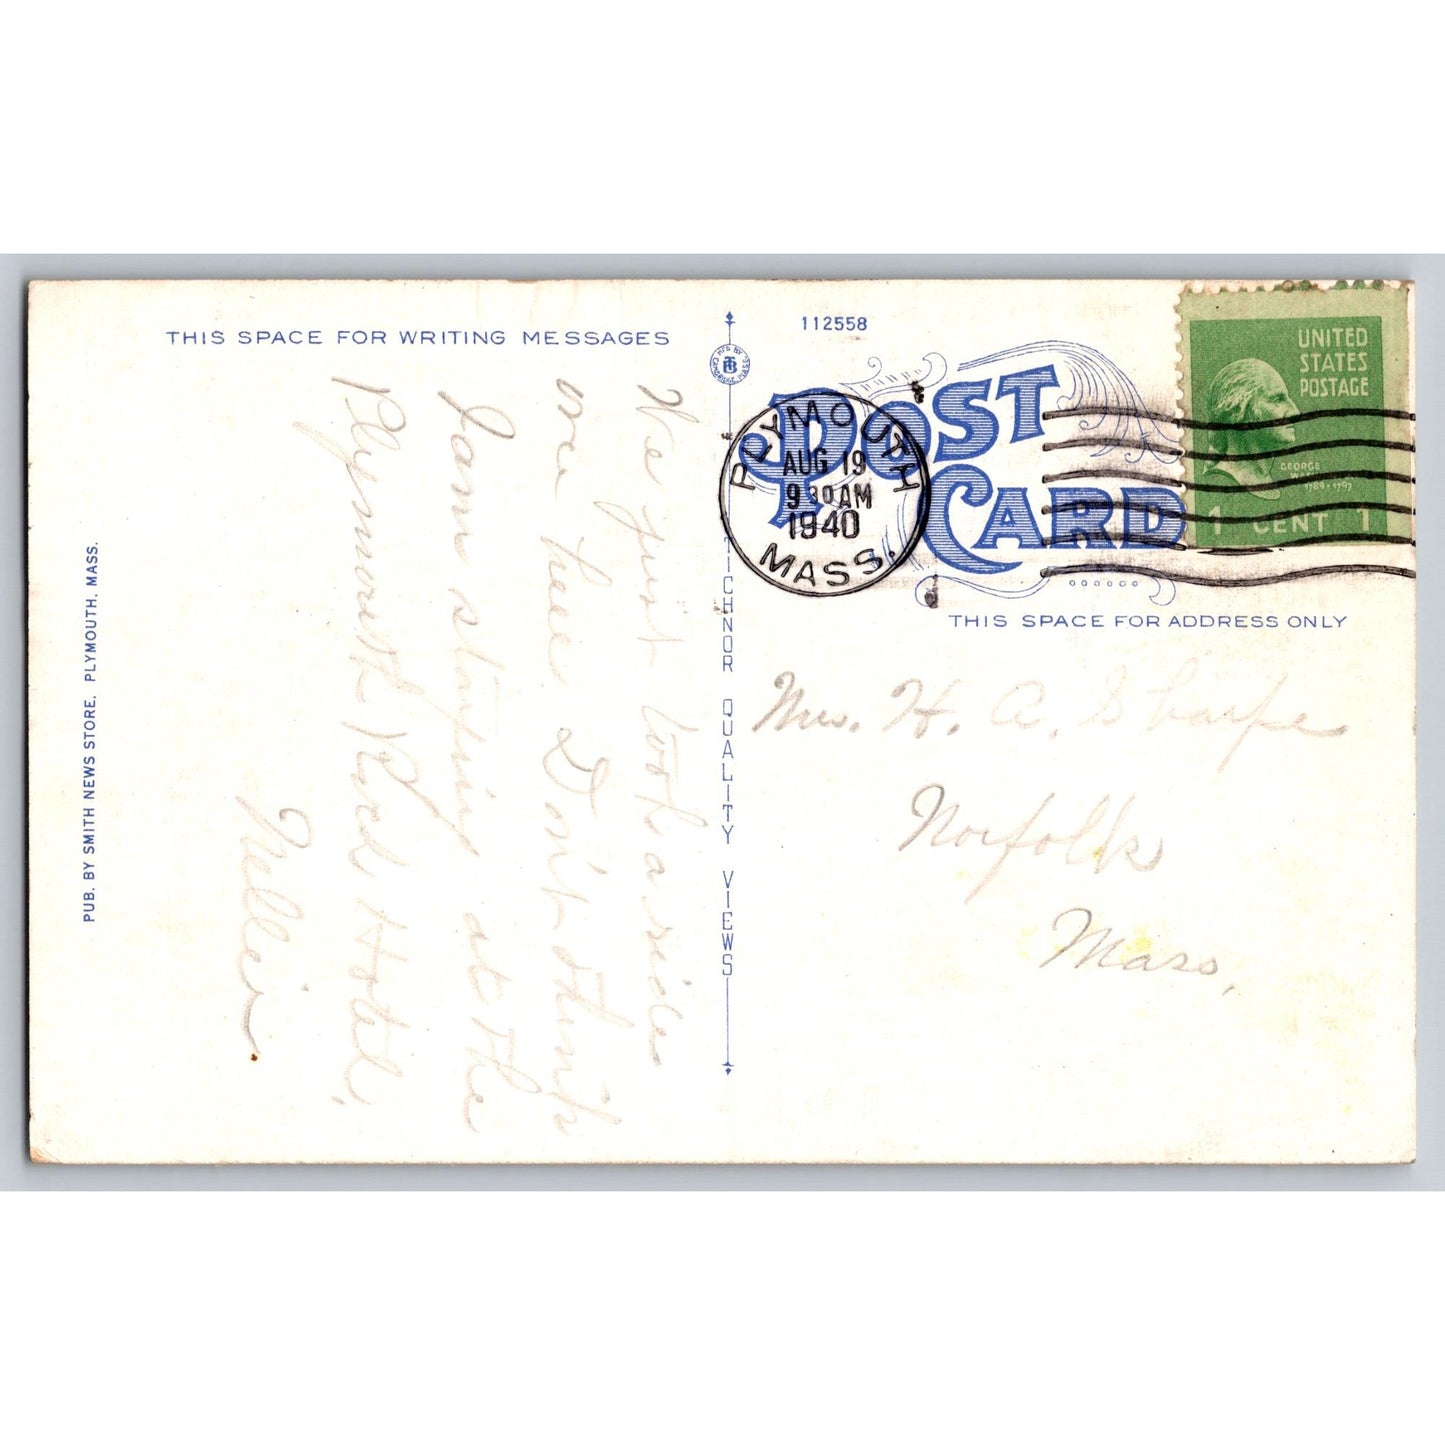 THIS SPACE FOR WRITING MESSAGES
We just took a ride
over here Don't think
I am stopping at the
Plymouth Rock Hotel.
Nellie.
PUB. BY SMITH NEWS STORE. PLYMOUTH, MASS.
MFG BY
TB
CAMBRIDGE, MASS.
TICHNOR QUALITY VIEWS
112558
POST CARD
PLYMOUTH
AUG 19
9 30 AM
1940
MASS.
UNITED
STATES
POSTAGE
GEORGE
1789-1797
1 CENT 1
THIS SPACE FOR ADDRESS ONLY
Mrs. H. A. Sharpe
Norfolk
Mass,